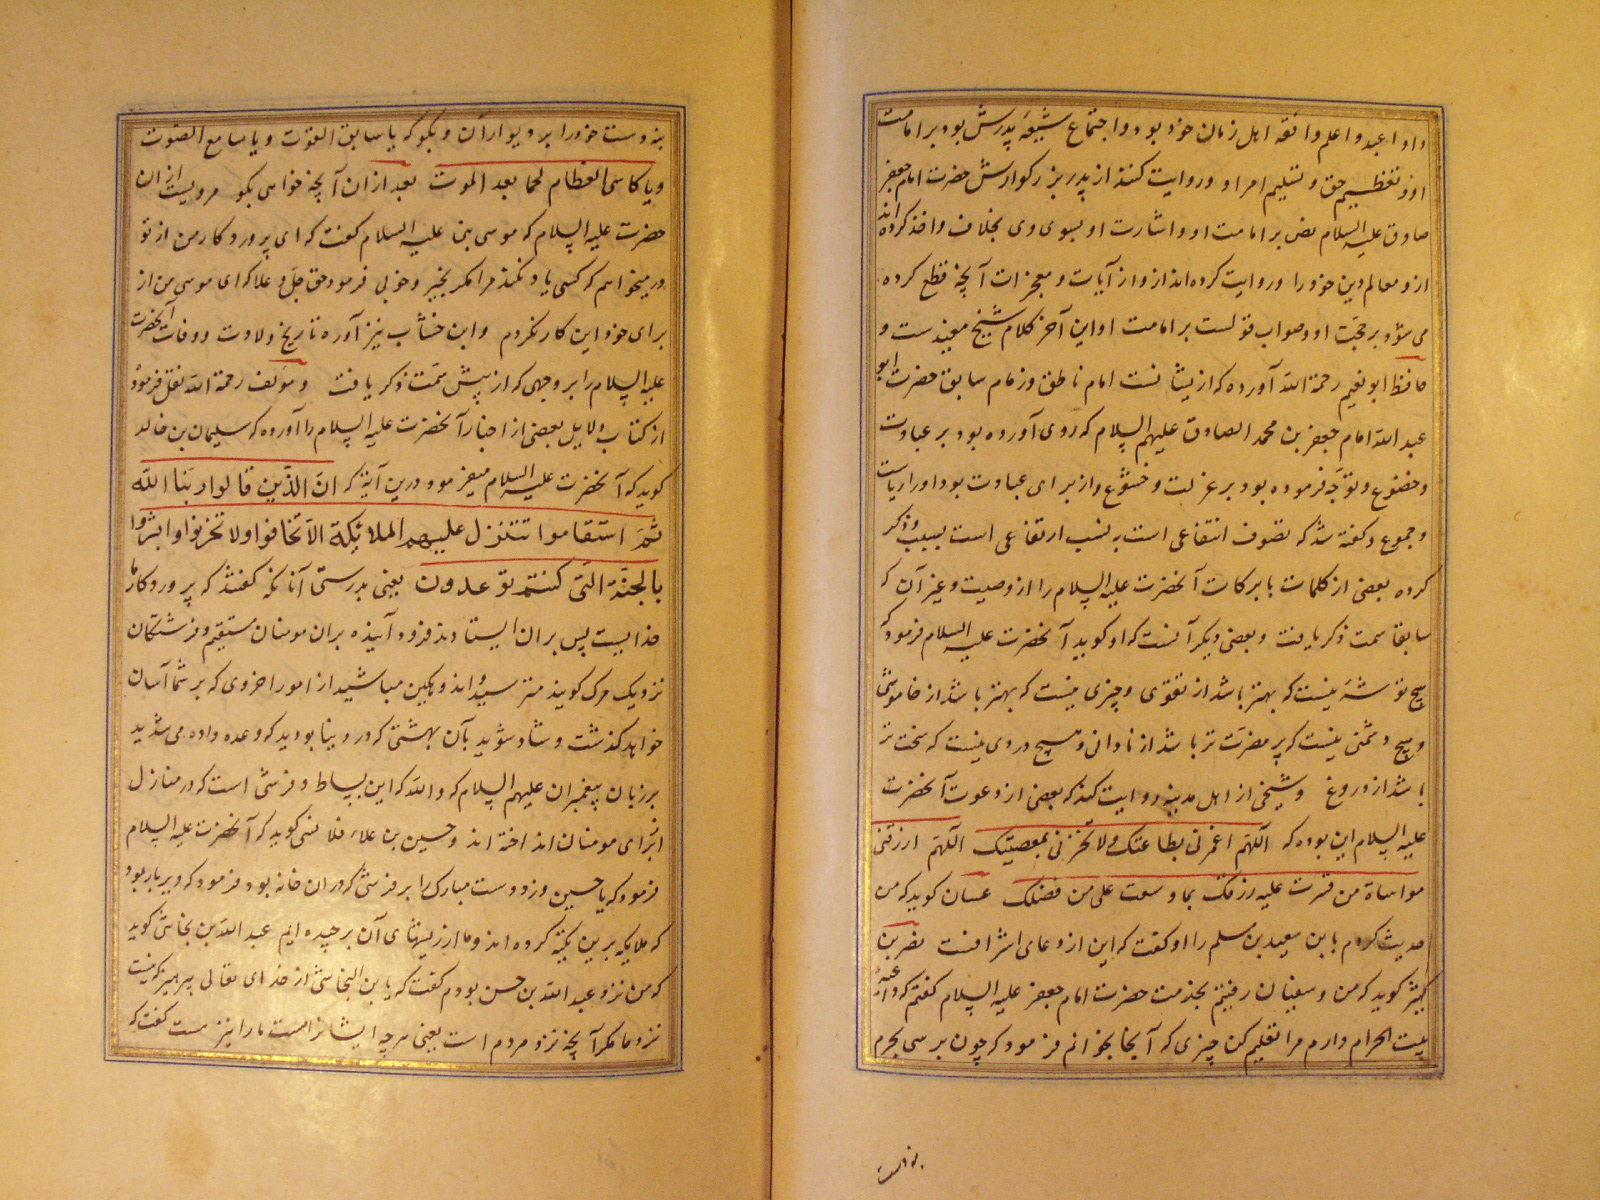 و او اعبد و اعلم و افقه اهل زمان خود بود و اجتماع شیعه پدرش بود بر امامت
او و تعظیم حق و تسلیم امر او و روایت کنند از پدر بزرکوارش حضرت امام جعفر
صادق علیه السلام نص بر امامت او و اشارت او بسوی وی بخلاف و اخذ کرده اند
از و معالم دین خود را و روایت کرده اند از و از آیات و معجزات آنچه قطع کرده
می شود بر حجت او و صواب قولست بر امامت او این آخر کلام شیخ مفیدست و
حافظ ابو نعیم رحمة الله آورده که ازیشانست امام ناطق و زمام سابق حضرت ابو
عبد الله امام جعفر بن محمد الصادق علیهم السلام که روی آورده بود بر عبادت
و خضوع و توجه فرموده بود بر عزلت و خشوع و از برای عبادت بود او را ریاست
و جموع و کفته شد که تصوف انتفاعی است به نسب ارتفاعی است بسبب و ذکر
کرده بعضی از کلمات با برکات آنحضرت علیه السلام را از وصیت و غیر آن که
سابقا سمت ذکر یافت و بعضی دیکر آنست که او کوید آنحضرت علیه السلام فرمود که
هیچ توشه نیست که بهتر باشد از تقوی و چیزی نیست که بهتر باشد از خاموشی
و هیچ دشمنی نیست که پر مضرت تر باشد از نادانی و هیچ دردی نیست که سخت تر
باشد از دروغ و شیخی از اهل مدینه روایت کند که بعضی از دعوت آنحضرت
علیه السلام این بوده که اللهم اعزنی بطاعتک و لا تخزنی بمعصیتک اللهم ارزقنی
مواساة من قترت علیه رزقک بما وسعت علی من فضلک غسان کوید که من
حدیث کردم باین سعید بن سلم را او کفت که این از دعای اشرافست نضر بن
کثیر کوید که من و سفیان رفتیم بخدمت حضرت امام جعفر علیه السلام کفتم که داعیه
بیت الحرام دارم مرا تعلیم کن چیزی که آنجا بخوانم فرمود که چون برسی بحرم
بنه دست
بنه دست خود را بر دیوار آن و بکو که یا سابق الفوت و یا سامع الصوت
و یا کاسی العظام لحما بعد الموت بعد از آن آنچه خواهی بکو مرویست از آن
حضرت علیه السلام که موسی نبی علیه السلام کفت که ای پروردکار من از تو
در میخواهم که کسی یاد نکند مرا مکر بخیر و خوبی فرمود حق جل و علا که ای موسی من از
برای خود این کار نکردم و ابن خشاب نیز آورده تاریخ ولادت و وفات آنحضرت
علیه السلام را بر وجهی که از پیش سمت ذکر یافت و مؤلف رحمة الله نقل فرموده
از کتاب دلایل بعضی از اخبار آنحضرت علیه السلام را آورده که سلیمان بن خالد
کوید که آنحضرت علیه السلام میفرمود درین آیة که ان الذین قالوا ربنا الله
ثم استقاموا تتنزل علیهم الملائکة الا تخافوا و لا تحزنوا و ابشروا
بالجنة التی کنتم توعدون یعنی بدرستی آنانکه کفتند که پروردکار ما
خداییست پس بر آن ایستادند فرود آینده بر آن مومنان مستقیم و فرشتکان
نزدیک مرک کویند مترسید و اندوهکین مباشید از امور اخروی که بر شما آسان
خواهد کذشت و شاد شوید بآن بهشتی که در دنیا بودید که وعده داده می شدید
بر زبان پیغمبران علیهم السلام که و الله که این بساط و فرشی است که در منازل
برای مومنان انداخته اند و حسین بن علاء قلانسی کوید که آنحضرت علیه السلام
فرمود که یا حسین و زد دست مبارک را بر فرشی که در آن خانه بود فرمود که
که ملایکه برین تکیه کرده اند و ما از ریشهای آن برچیده ایم عبد الله بن نجاشی کوید
که من نزد عبد الله بن حسن بودم کفت که یا بن النجاشی از خدای تعالی بپرهیز که نیست
نزد ما مکر آنچه نزد مردم است یعنی هر چه ایشانراست ما را نیز هست کفت که